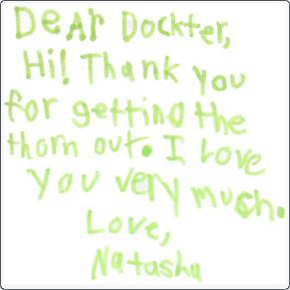 Dear Dockter,
Hi! Thank you
for getting the
thorn out. I love
you very much.
Love,
Natasha